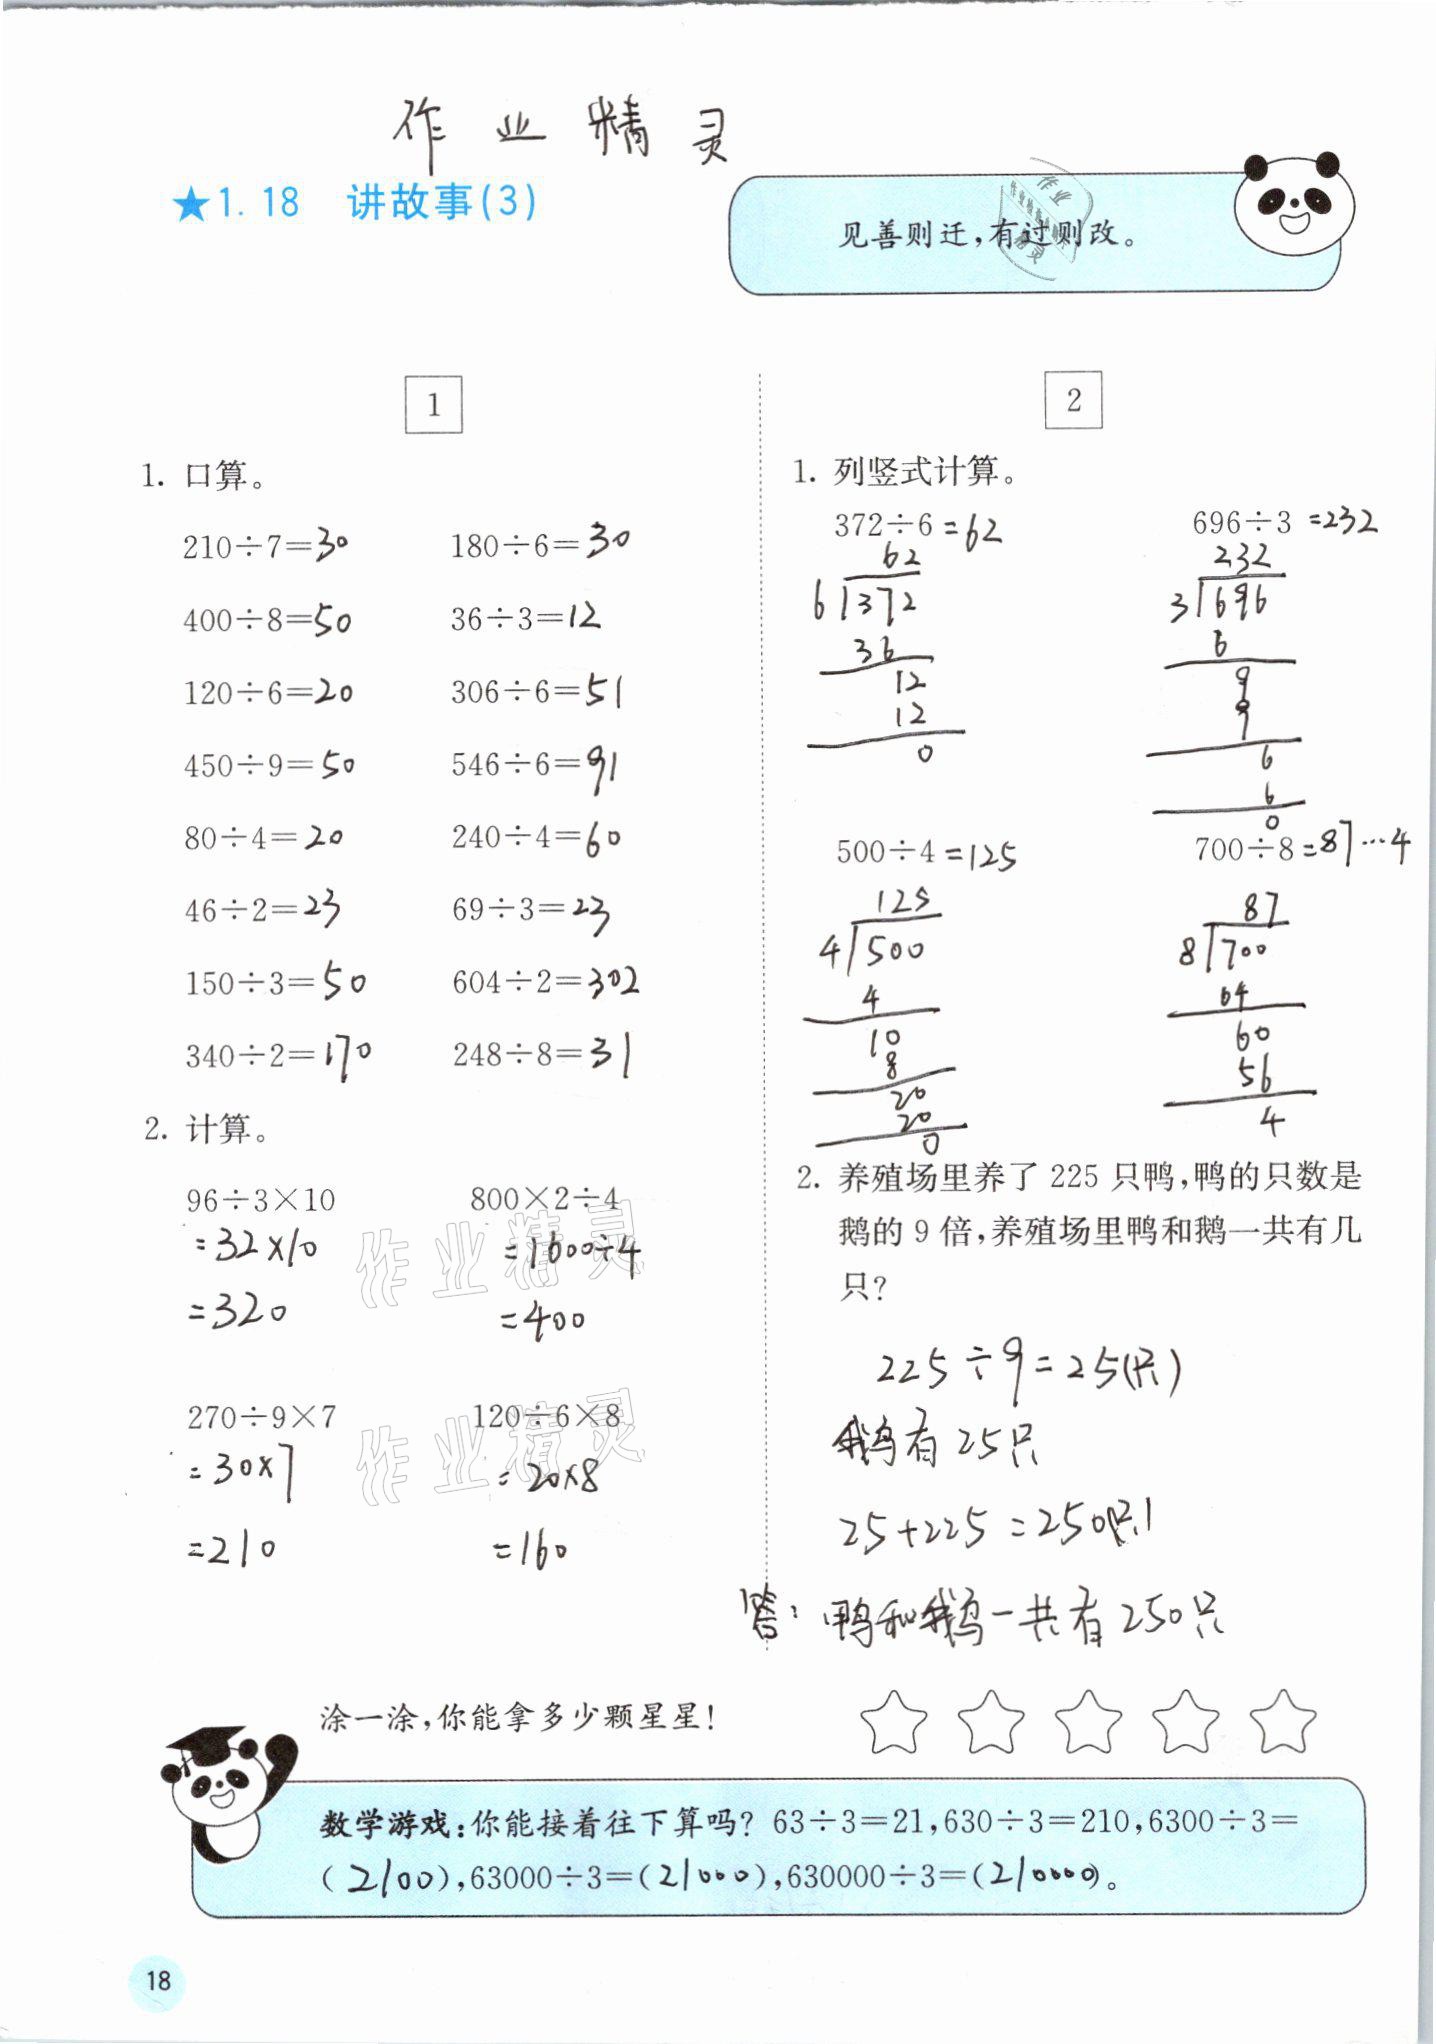 作业精灵
★1.18 讲故事(3)
见善则迁,有过则改。
1
1. 口算。
210÷7=30 180÷6=30
400÷8=50 36÷3=12
120÷6=20 306÷6=51
450÷9=50 546÷6=91
80÷4=20 240÷4=60
46÷2=23 69÷3=23
150÷3=50 604÷2=302
340÷2=170 248÷8=31
2. 计算。
96÷3×10 800×2÷4
=32×10 =1600÷4
=320 =400
270÷9×7 120÷6×8
=30×7 =20×8
=210 =160
作业精灵
作业精灵
2
1. 列竖式计算。
372÷6=62 696÷3=232
62 232
6 372 3 696
36 6
12 9
12 9
0 6
6
0
500÷4=125 700÷8=87…4
125 87
4 500 8 700
4 64
10 60
8 56
20 4
20
0
2. 养殖场里养了 225 只鸭,鸭的只数是
鹅的 9 倍,养殖场里鸭和鹅一共有几
只?
225÷9=25(只)
鹅有25只
25+225=250(只)
答:鸭和鹅一共有250只
涂一涂,你能拿多少颗星星!
数学游戏:你能接着往下算吗? 63÷3=21,630÷3=210,6300÷3=
(2100),63000÷3=(21000),630000÷3=(210000)。
18